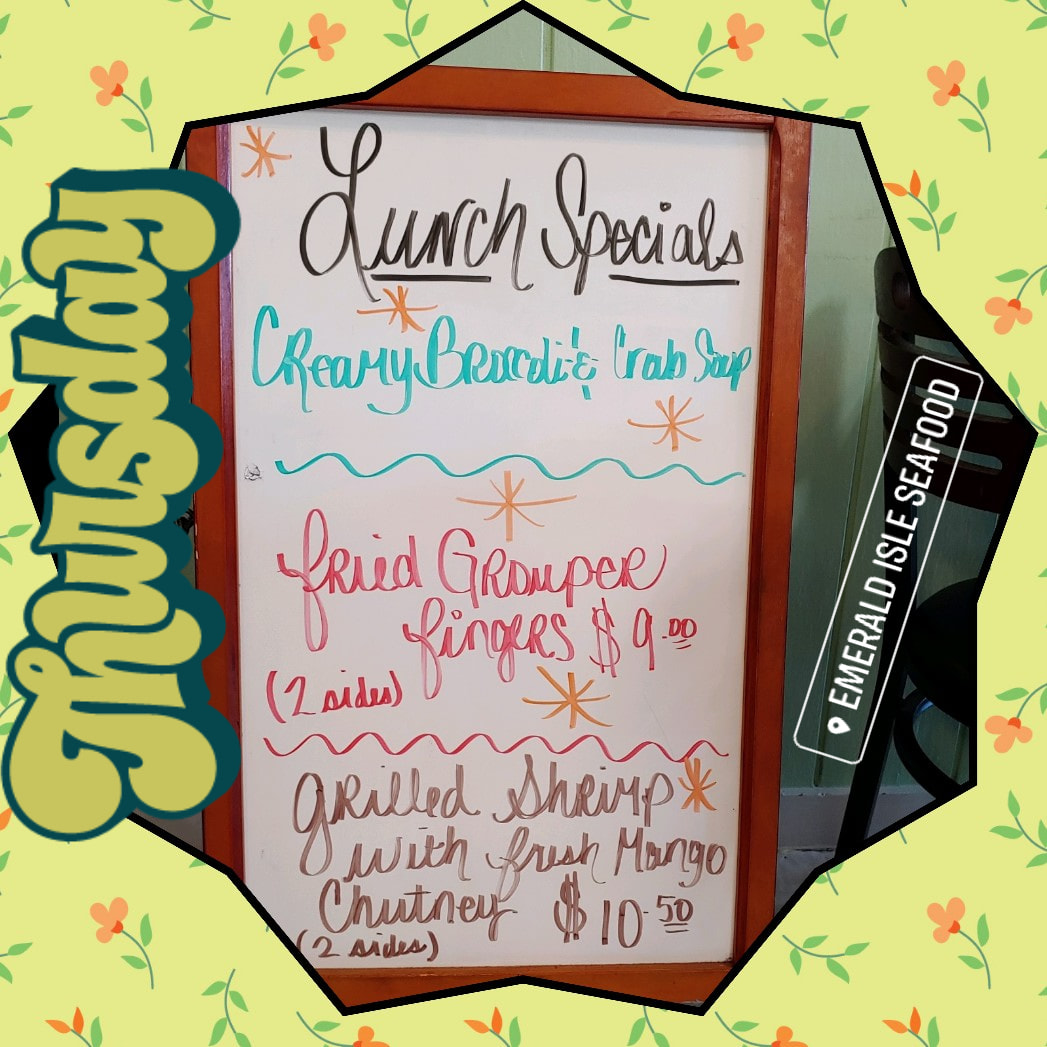 Thursday
Lunch Specials
Creamy Broccoli & Crab Soup
Fried Grouper
Fingers $9.00
(2 sides)
Grilled Shrimp
with fresh Mango
Chutney $10.50
(2 sides)
EMERALD ISLE SEAFOOD